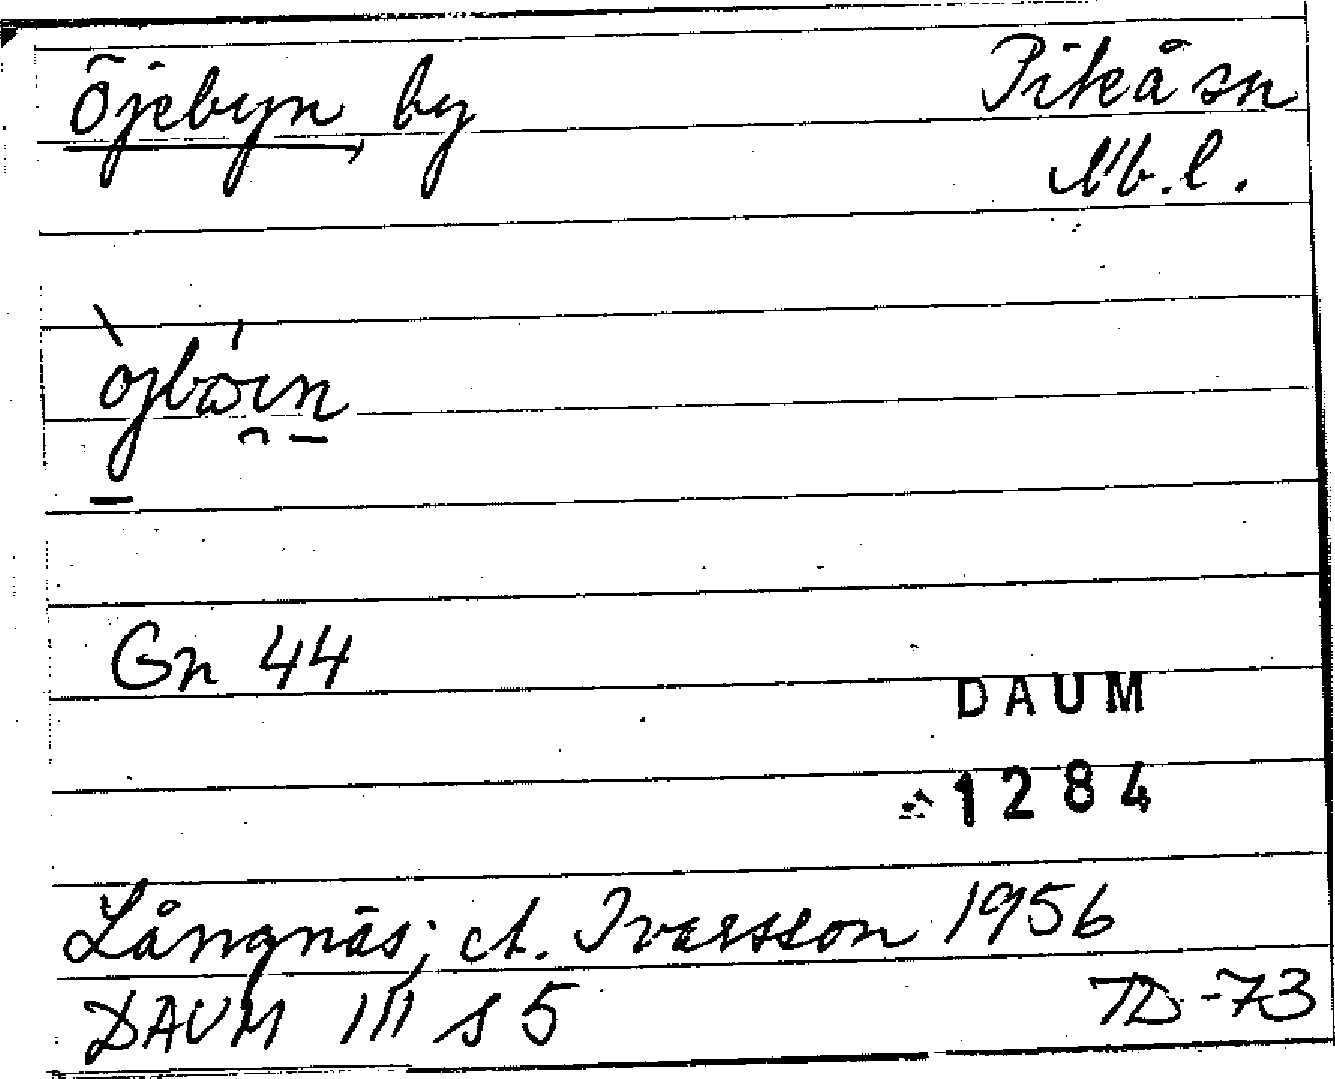 Öjebyn by Piteå sn
Nb.l.
òjbɷ́ın
Gn 44
DAUM
1284
Långnäs; A. Ivarsson 1956
DAUM III s 5 TD-73